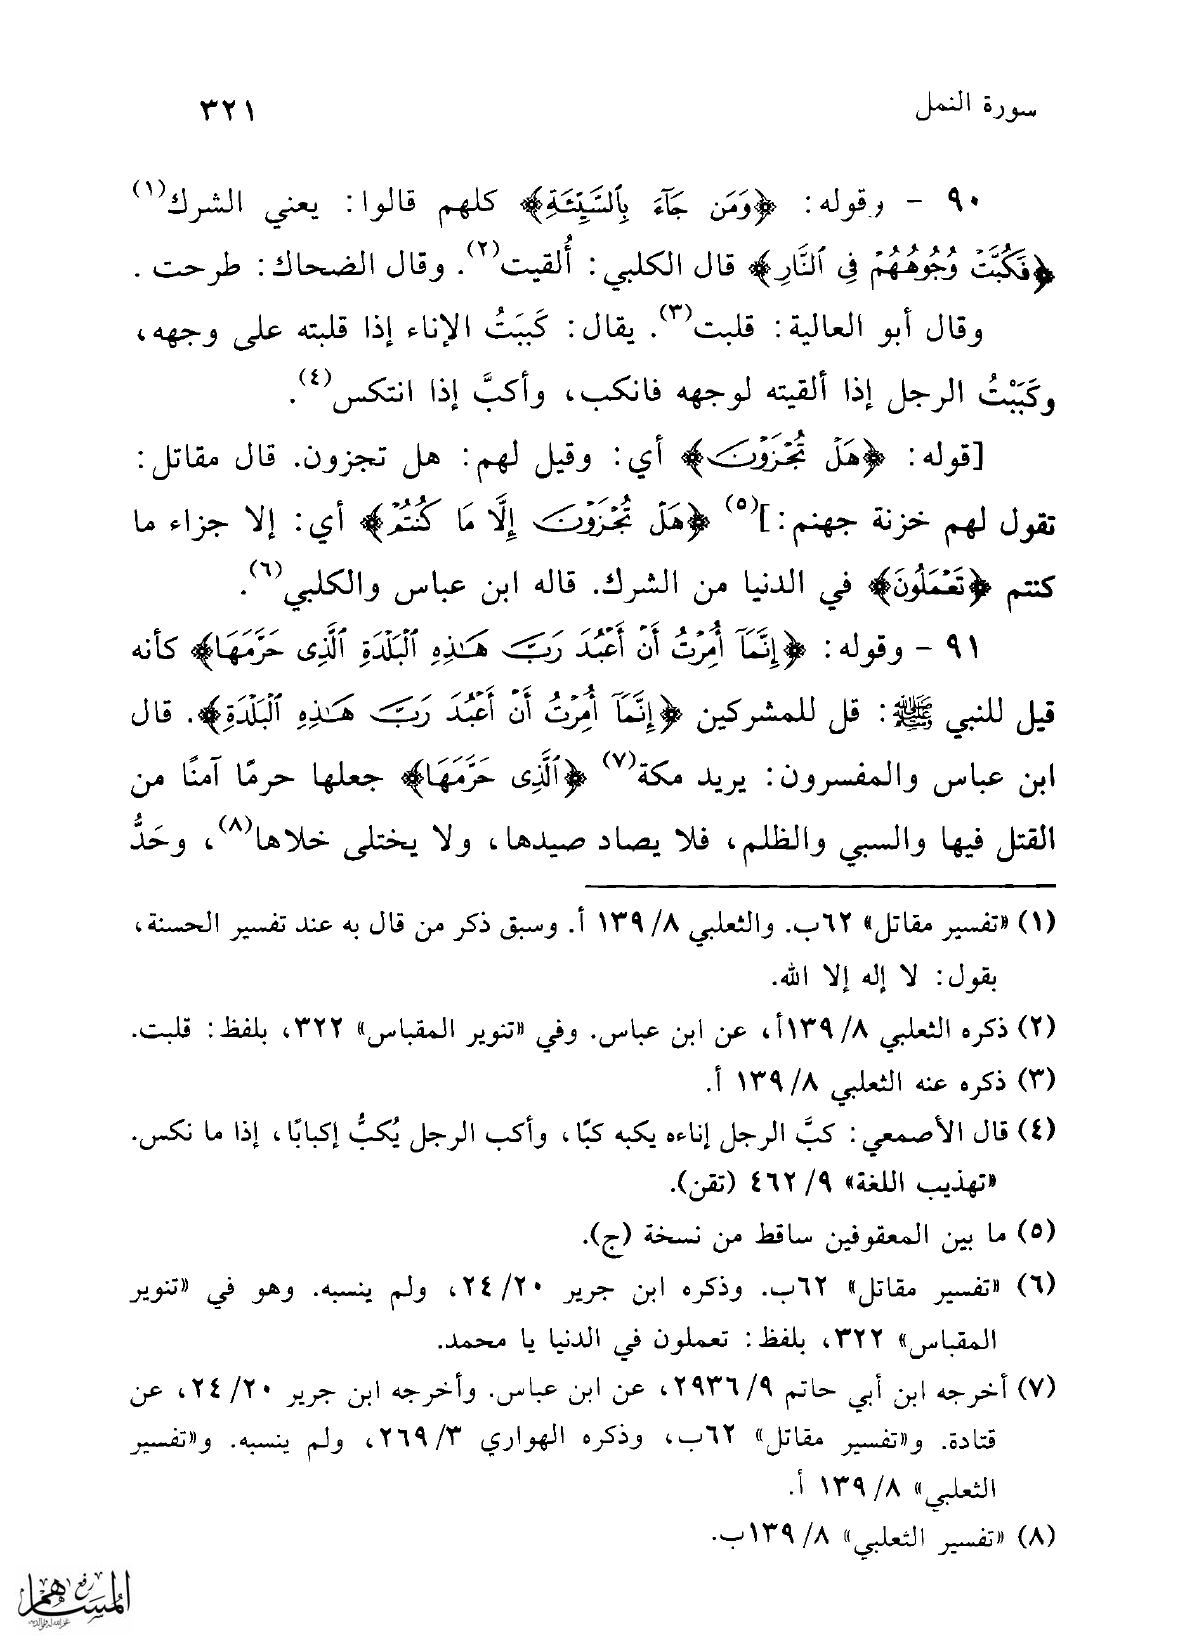 سورة النمل
٣٢١
٩٠ - وقوله: ﴿وَمَن جَآءَ بِٱلسَّيِّئَةِ﴾ كلهم قالوا: يعني الشرك(١)
﴿فَكُبَّتۡ وُجُوهُهُمۡ فِى ٱلنَّارِ﴾ قال الكلبي: أُلقيت(٢). وقال الضحاك: طرحت.
وقال أبو العالية: قلبت(٣). يقال: كَبَبَتُ الإناء إذا قلبته على وجهه،
وكَبَبْتُ الرجل إذا ألقيته لوجهه فانكب، وأكبَّ إذا انتكس(٤).
[قوله: ﴿هَلۡ تُجۡزَوۡنَ﴾ أي: وقيل لهم: هل تجزون. قال مقاتل:
تقول لهم خزنة جهنم:](٥) ﴿هَلۡ تُجۡزَوۡنَ إِلَّا مَا كُنتُمۡ﴾ أي: إلا جزاء ما
كنتم ﴿تَعۡمَلُونَ﴾ في الدنيا من الشرك. قاله ابن عباس والكلبي(٦).
٩١ - وقوله: ﴿إِنَّمَآ أُمِرۡتُ أَنۡ أَعۡبُدَ رَبَّ هَـٰذِهِ ٱلۡبَلۡدَةِ ٱلَّذِى حَرَّمَهَا﴾ كأنه
قيل للنبي ﷺ: قل للمشركين ﴿إِنَّمَآ أُمِرۡتُ أَنۡ أَعۡبُدَ رَبَّ هَـٰذِهِ ٱلۡبَلۡدَةِ﴾. قال
ابن عباس والمفسرون: يريد مكة(٧) ﴿ٱلَّذِى حَرَّمَهَا﴾ جعلها حرمًا آمنًا من
القتل فيها والسبي والظلم، فلا يصاد صيدها، ولا يختلى خلاها(٨)، وحَدُّ
(١) «تفسير مقاتل» ٦٢ب. والثعلبي ٨/ ١٣٩ أ. وسبق ذكر من قال به عند تفسير الحسنة،
بقول: لا إله إلا الله.
(٢) ذكره الثعلبي ٨/ ١٣٩أ، عن ابن عباس. وفي «تنوير المقباس» ٣٢٢، بلفظ: قلبت.
(٣) ذكره عنه الثعلبي ٨/ ١٣٩ أ.
(٤) قال الأصمعي: كبَّ الرجل إناءه يكبه كبًا، وأكب الرجل يُكبُّ إكبابًا، إذا ما نكس.
«تهذيب اللغة» ٩/ ٤٦٢ (تقن).
(٥) ما بين المعقوفين ساقط من نسخة (ج).
(٦) «تفسير مقاتل» ٦٢ب. وذكره ابن جرير ٢٠/ ٢٤، ولم ينسبه. وهو في «تنوير
المقباس» ٣٢٢، بلفظ: تعملون في الدنيا يا محمد.
(٧) أخرجه ابن أبي حاتم ٩/ ٢٩٣٦، عن ابن عباس. وأخرجه ابن جرير ٢٠/ ٢٤، عن
قتادة. و«تفسير مقاتل» ٦٢ب، وذكره الهواري ٣/ ٢٦٩، ولم ينسبه. و«تفسير
الثعلبي» ٨/ ١٣٩ أ.
(٨) «تفسير الثعلبي» ٨/ ١٣٩ب.